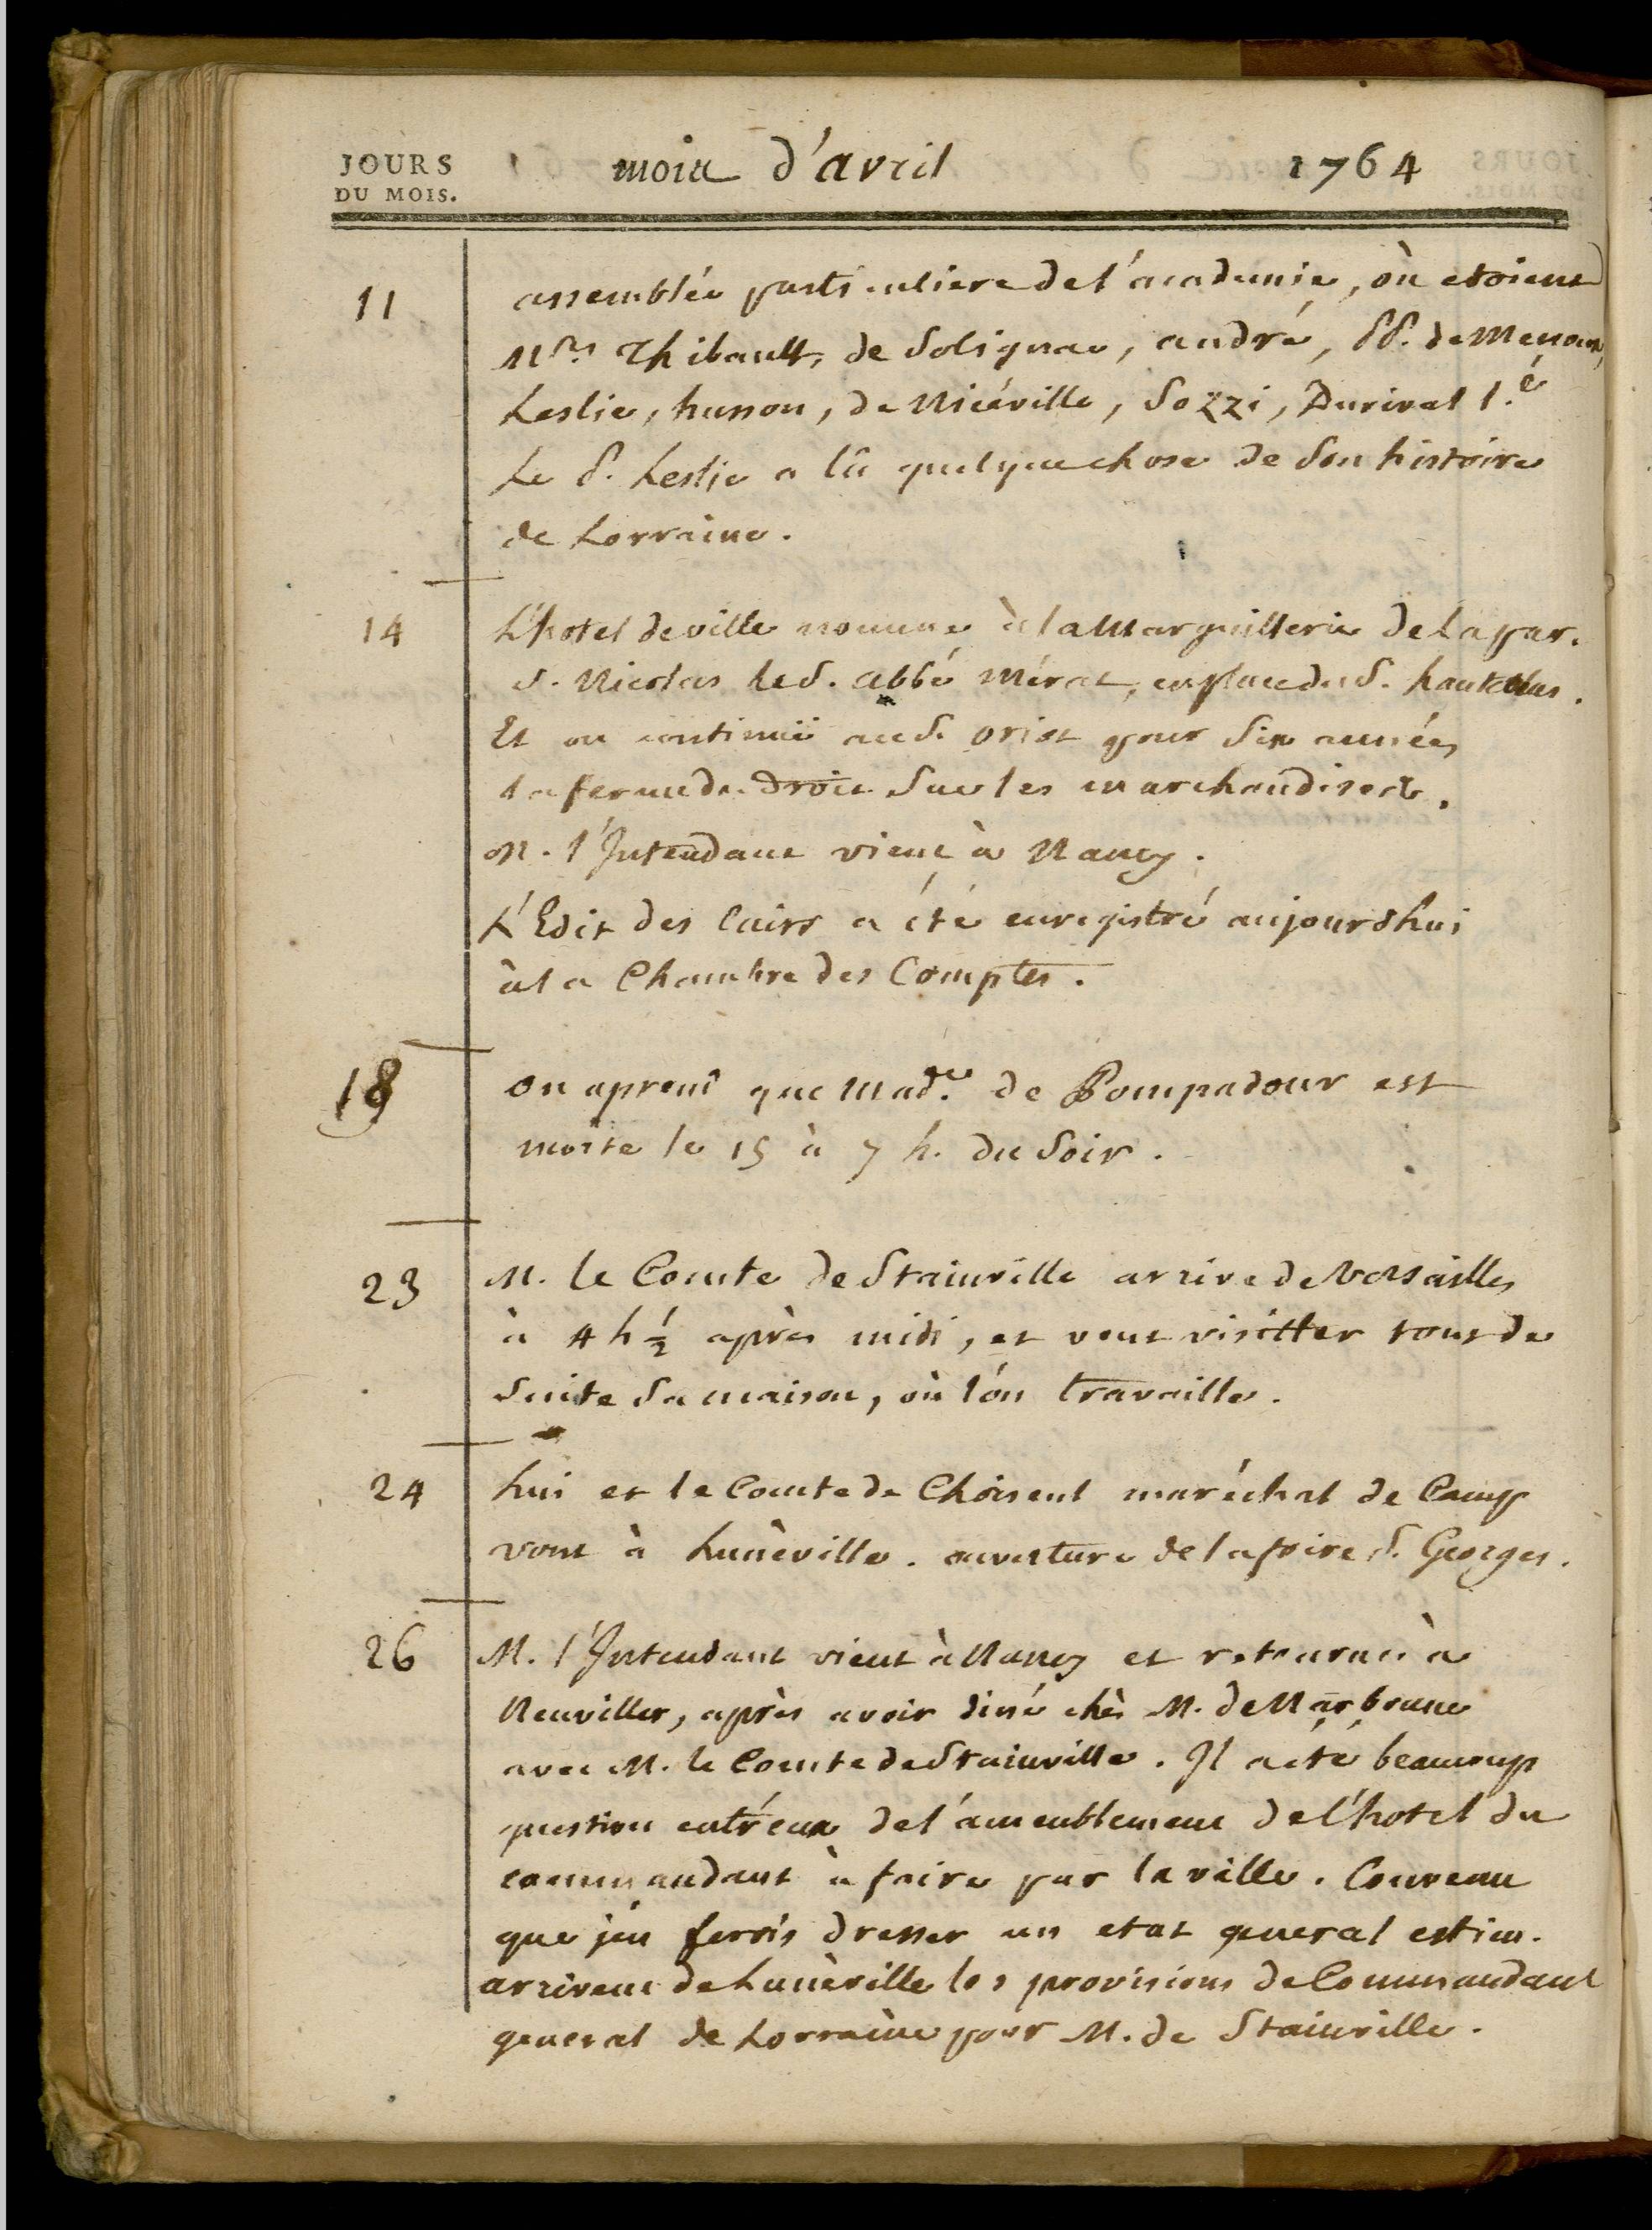 JOURS
DU MOIS.
mois d'avril 1764
11 assemblée particuliere de l'academie, où etoient
Mrs. Thibault, de Solignac, andré, PP. de Menoux,
Leslie, husson, de Niceville, Sozzi, Durival l'é
Le P. Leslie a lû quelque chose de son histoire
de Lorraine.
14 L'hotel de ville nomme à la Marguillerie de la par.
S. Nicolas le S. abbé Mérat, en place du S.
Et on continuë au S. oriot pour six années
la ferme du droit sur les marchandises &.
M. l'Intendant vient à Nancy.
L'Edit des Cuirs a été enregistré aujourdhui
à la Chambre des Comptes.
18 on aprent que Made. de Pompadour est
morte le 15 à 7 h. du soir.
23 M. le Comte de Stainville arrive de Versailles
à 4 h ½ après midi, et vont visitter tout de
suite sa maison, où l'on travaille.
24 Lui et le Comte de Choiseul maréchal de Camp
vont à Lunéville. ouverture de la foire S. Georges.
26 M. l'Intendant vient à Nancy et retourne à
Neuviller, après avoir diné chès M. de Narbonne
avec M. le Comte de Stainville. Il a été beaucoup
question entr'eux de l'ameublement de l'hotel du
commandant à faire par la ville. Convenu
que j'en ferois dresser un etat general estim.
arrivent de Lunéville les provisions de Commandant
general de Lorraine pour M. de Stainville.